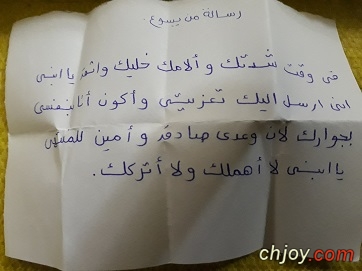 رسالة من يسوع.
فى وقت شدتك وألامك خليك واثق يا ابنى
انى ارسل اليك تعزيتى وأكون أنا بنفسى
بجوارك لأن وعدى صادق وأمين للمنتهى
يا ابنى لا أهملك ولا أتركك.
chjoy.com